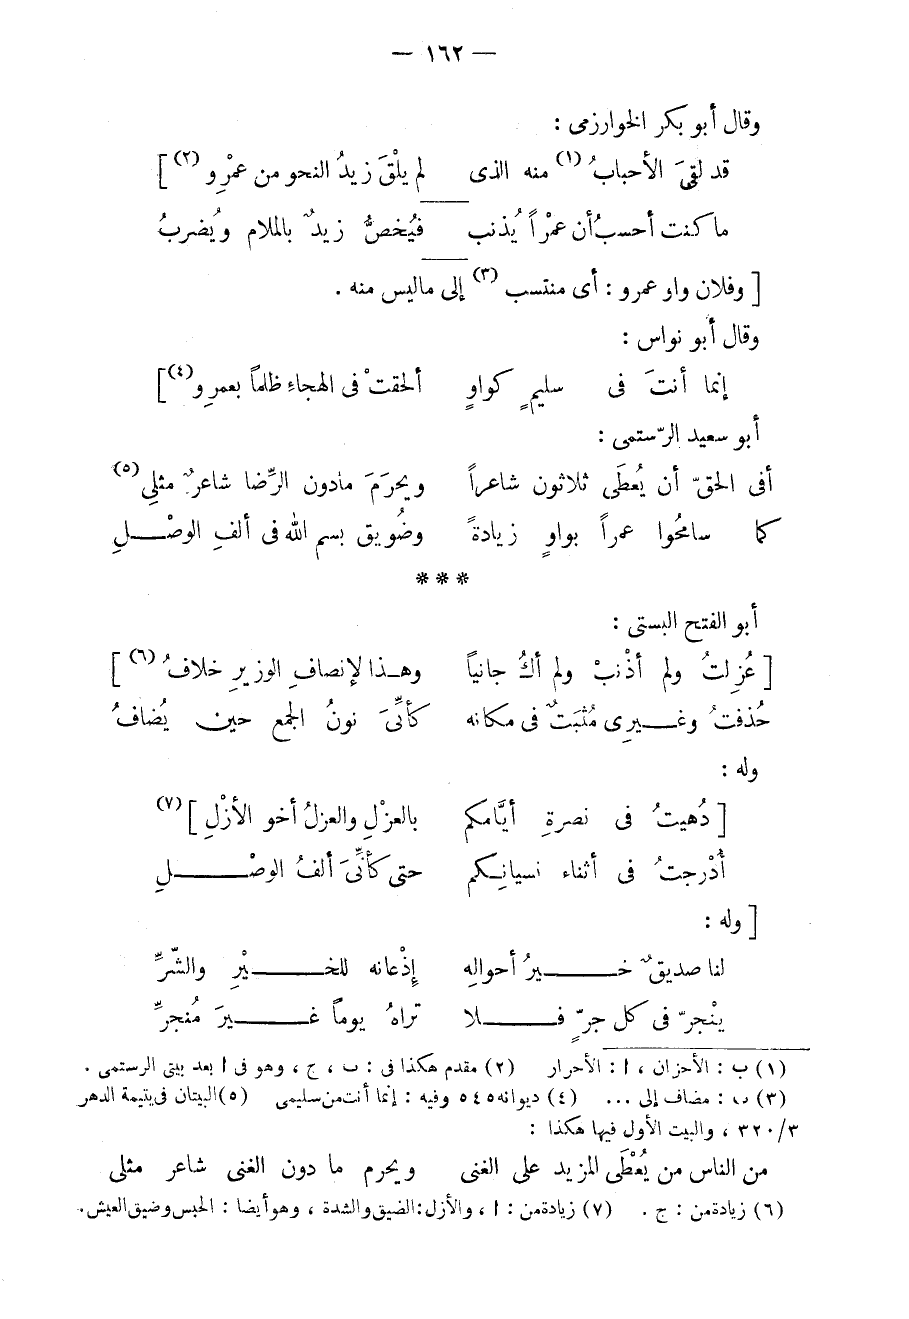 — ١٦٢ —
وقال أبو بكر الخوارزمى :
قد لقىَ الأحبابُ (١) منه الذى لم يلْقَ زيدُ النحو من عمْرِو (٢) ]
ما كنت أحسبُ أن عمْراً يُذنب فيُخصُّ زيدٌ بالملام ويُضربُ
[ وفلان واو عمرو : أى منتسب (٣) إلى ماليس منه .
وقال أبو نواس :
إنما أنتَ فى سليمٍ كواوٍ ألحقتْ فى الهجاء ظلماً بعمرِو (٤) ]
أبو سعيد الرّستمى :
أفى الحقّ أن يُعطَى ثلاثون شاعراً ويحرَمَ مادون الرِّضا شاعرٌ مثلِى (٥)
كما سامحُوا عمراً بواوٍ زيادةً وضُويق بسم الله فى ألفِ الوصْلِ
* * *
أبو الفتح البستى :
[ عُزلتُ ولم أذْنبْ ولم أكُ جانياً وهذا لإنصافِ الوزيرِ خلافُ (٦) ]
حُذفتُ وغيرِى مُثبَتٌ فى مكانه كأنِّىَ نونُ الجمع حين يُضافُ
وله :
[ دُهيتُ فى نصرةِ أيَّامكم بالعزْلِ والعزلُ أخو الأزْلِ ] (٧)
أُدْرجتُ فى أثناء نسيانِكم حتى كأنِّىَ ألفُ الوصْلِ
[ وله :
لنا صديقٌ خيرُ أحوالِه إذْعانه للخيْرِ والشّرِّ
ينْجرّ فى كل جرّ فلا تراهُ يوماً غيرَ مُنجرِّ
(١) ب : الأحزان ، ا : الأحرار (٢) مقدم هكذا فى : ب ، ج ، وهو فى ا بعد بيتى الرستمى .
(٣) ب : مضاف إلى ... (٤) ديوانه ٥٤٥ وفيه : إنما أنت من سليمى (٥) البيتان فى يتيمة الدهر
٣/٣٢٠ ، والبيت الأول فيها هكذا :
من الناس من يُعْطَى المزيد على الغنى ويحرم ما دون الغنى شاعر مثلى
(٦) زيادة من : ج . (٧) زيادة من : ا ، والأزل : الضيق والشدة ، وهو أيضا : الحبس وضيق العيش .